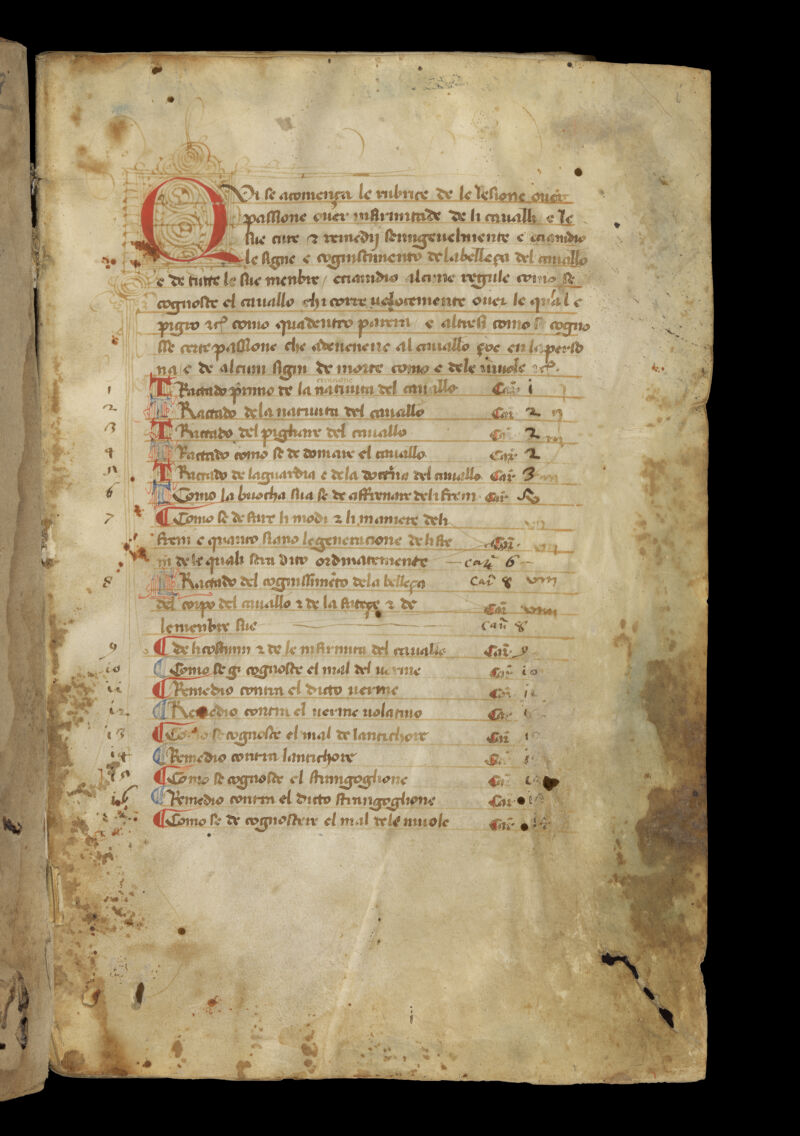 QVi se acomença le rubrice de le lesione ouer
passione ouer infirmitade de li caualli e le
sue cure & remedij seingeuelmente e etiamdio
le signe e cognossimento de la belleça del cauallo
e de tutte le sue menbre / etiamdio alcune regule como se
cognosce el cauallo chi corre uelocemente ouer le qual e
pigro & como quadentro pareno e altresi como se cogno
sse certe passione che adeuenene al cauallo çoe en la perso
na e de alcuni signi de morte como e de le uiuole
1 TRactado primo de la natiuita del cauallo Car i
2 TRactado de la natiuita del cauallo Car 2
3 TRactado del pigliare del cauallo Ca 2
4 TRactado como se de domare el cauallo Car 2
5 TRactado de la guardia e de la doctrina del cauallo Car 3
6 Como la buocha sua se de affrenare de li freni Car 5
7 Como se de fare li modi & li maniere deli
freni e quanto siano le generacione de li fre
ni de le quali sera dito ordinatemente car 6
8 TRactado del cognossimento de la belleça Car 8 viii
del corpo del cauallo & de la fateçe & de Car viiii
le menbre sue car 8
9 de li costumi & de le infirmita del cauallo Car 9
10 Como se cognosce el mal del uerme Car 10
11 Remedio contra el dicto uerme Car
12 Remedio contra el uerme uolatino Car
13 Como se cognosce el mal de lantichore Car
14 Remedio contra lantichore Ca
15 Como se cognosce el stranguglione Ca
16 Remedio contra el dicto stranguglione Car
Como se de cognoscere el mal de le uiuole Car
i